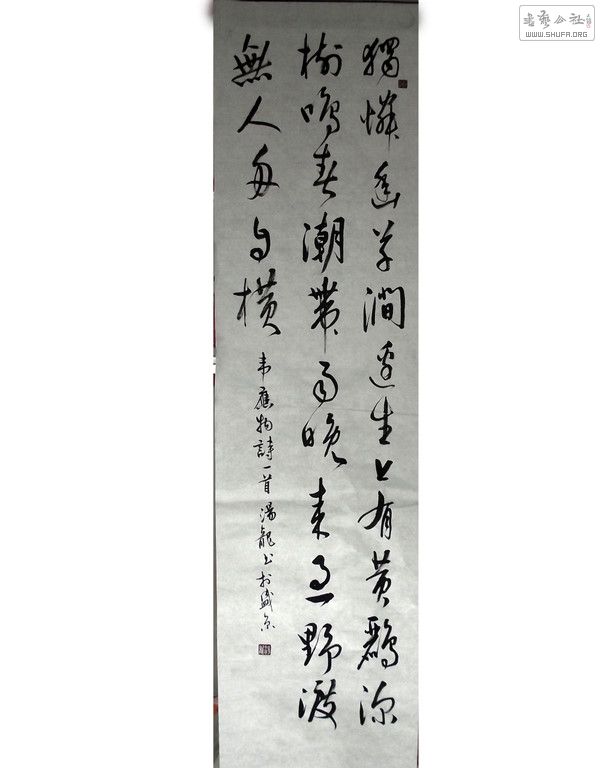 獨憐幽草澗邊生上有黄鸝深
樹鳴春潮帶雨晚来急野渡
無人舟自橫
韋應物詩一首 湯龍书於盛京
書藝公社
WWW.SHUFA.ORG